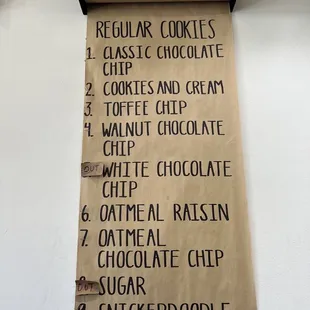 REGULAR COOKIES
1. CLASSIC CHOCOLATE
CHIP
2. COOKIES AND CREAM
3. TOFFEE CHIP
4. WALNUT CHOCOLATE
CHIP
OUT WHITE CHOCOLATE
CHIP
6. OATMEAL RAISIN
7. OATMEAL
CHOCOLATE CHIP
OUT SUGAR
9. SNICKERDOODLE